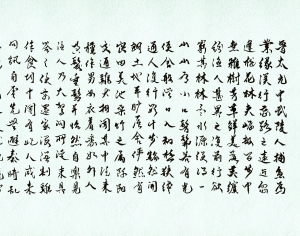 晉太元中武陵人捕魚為
業緣溪行忘路之遠近忽
逢桃花林夾岸數百步中
無雜樹芳草鮮美落英繽
紛漁人甚異之復前行欲
窮其林林盡水源便得一
山山有小口髣髴若有光
便舍船從口入初極狹才
通人復行數十步豁然開
朗土地平曠屋舍儼然有
良田美池桑竹之屬阡陌
交通雞犬相聞其中往來
種作男女衣著悉如外人
黃髮垂髫并怡然自樂見
漁人乃大驚問所從來具
答之便要還家設酒殺雞
作食村中聞有此人咸來
問訊自云先世避秦時亂